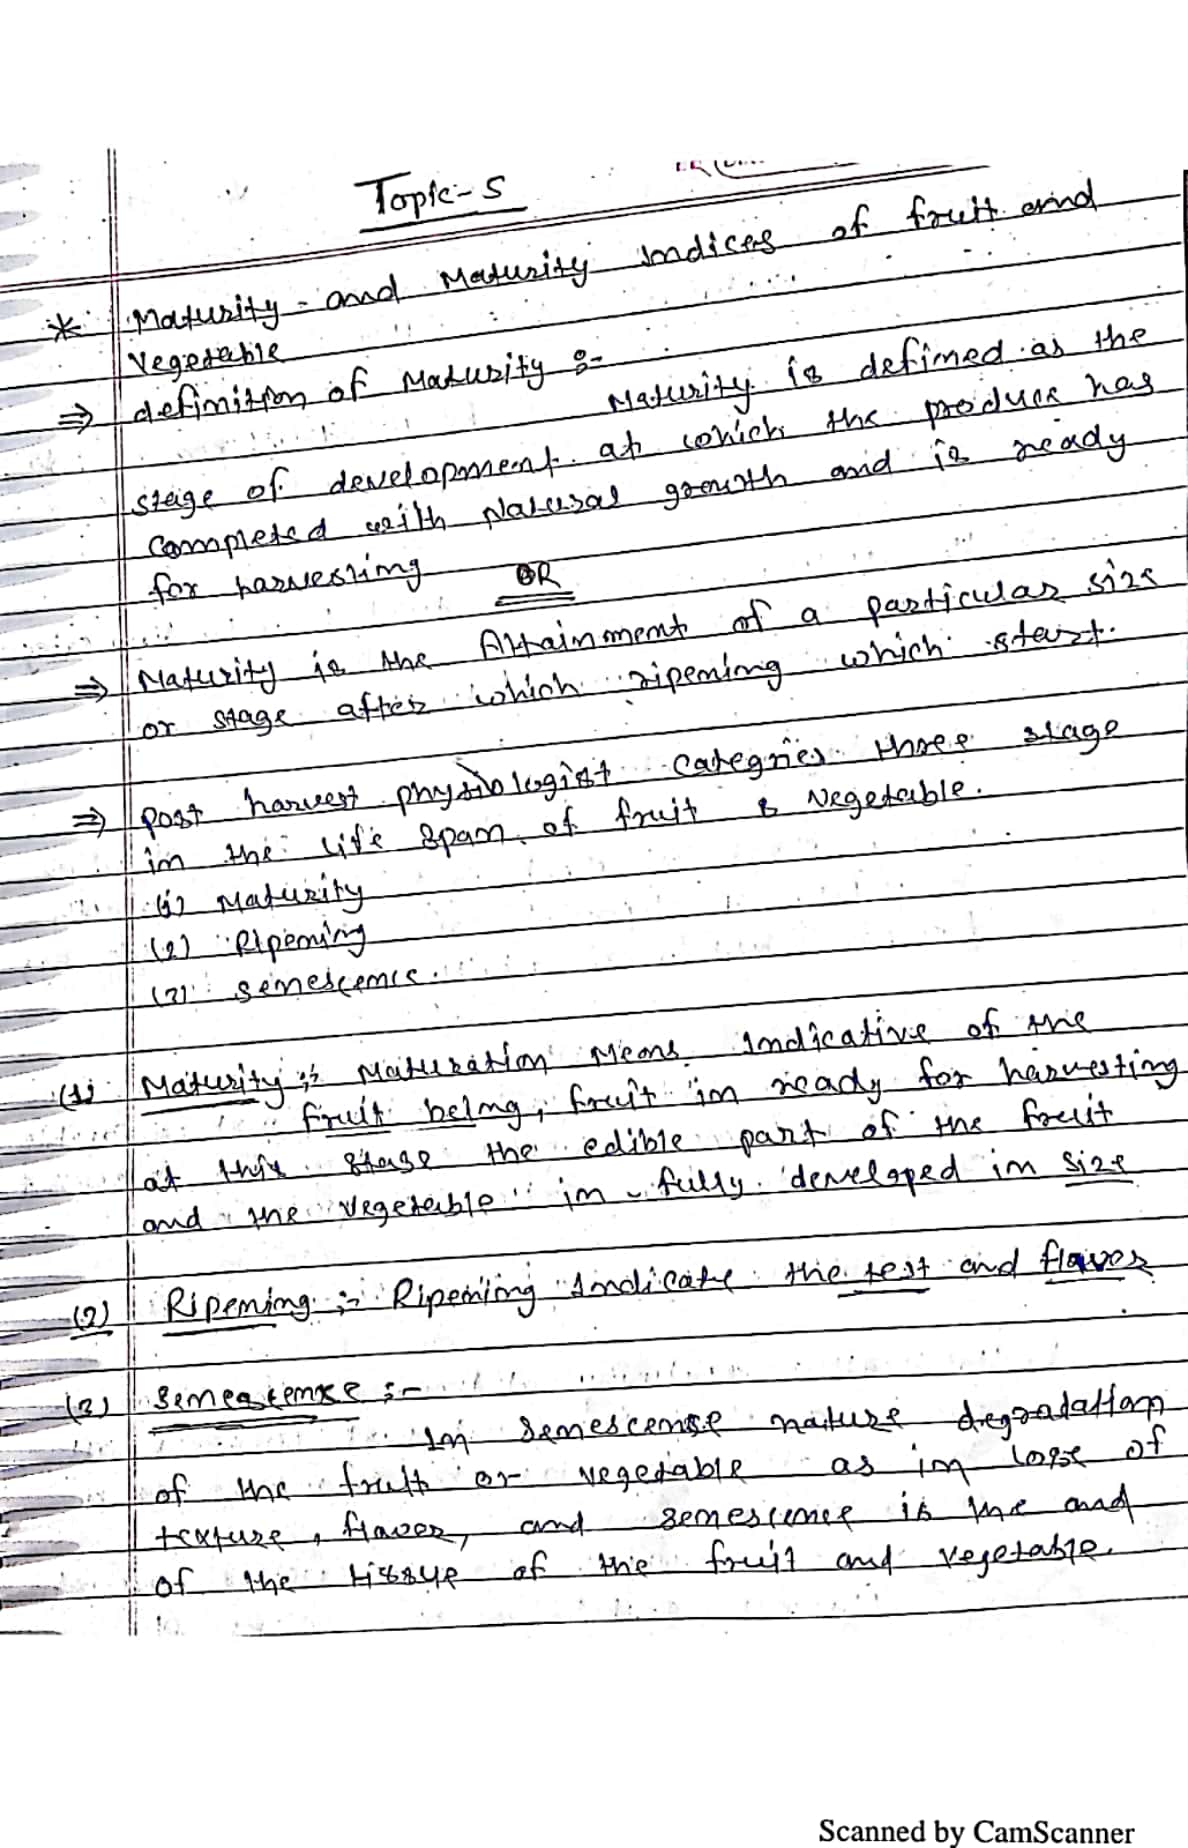 Topic-5
* Maturity - and Maturity Indices of fruit and
Vegetable
⇒ definition of Maturity :-
Maturity is defined as the
stage of development at which the produce has
Completed with Natural growth and is ready
for harvesting
OR
⇒ Maturity is the Attainment of a particular size
or stage after which ripening which start.
⇒ post harvest physiologist Categries three stage
in the life span of fruit & Vegetable.
(1) Maturity
(2) Ripening
(3) senescence.
(1) Maturity :- Maturation Means Indicative of the
fruit being, fruit in ready for harvesting
at this stage the edible part of the fruit
and the vegetable in fully developed in size
(2) Ripening :- Ripening Indicate the test and flavor
(3) senescense :-
In senescense nature degradation
of the fruit or vegetable as in lose of
texture, flavor, and senescence is the and
of the tissue of the fruit and vegetable.
Scanned by CamScanner